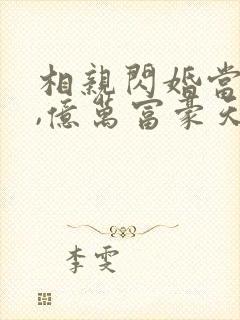 相親閃婚當
,億萬富豪天
李雯